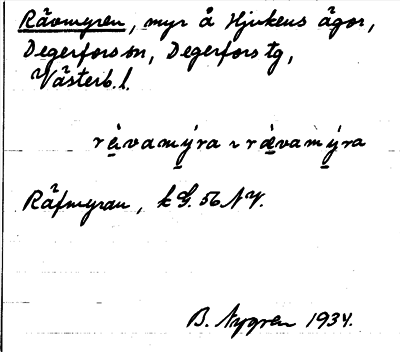 Rävmyren, myr å Hjukens ägor,
Degerfors sn, Degerfors tg,
Västerb. l.
rävamýra ~ rævamýra
Räfmyran, k G. 56 NV.
B. Nygren 1934.